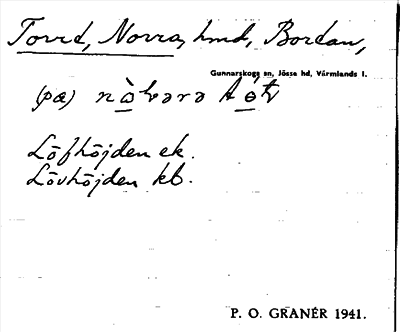 Torrd, Norra, hmd, Bordan,
Gunnarskogs sn, Jösse hd, Värmlands l.
(pæ)
Löfhöjden ek.
Lövhöjden kb.
P. O. GRANÉR 1941.